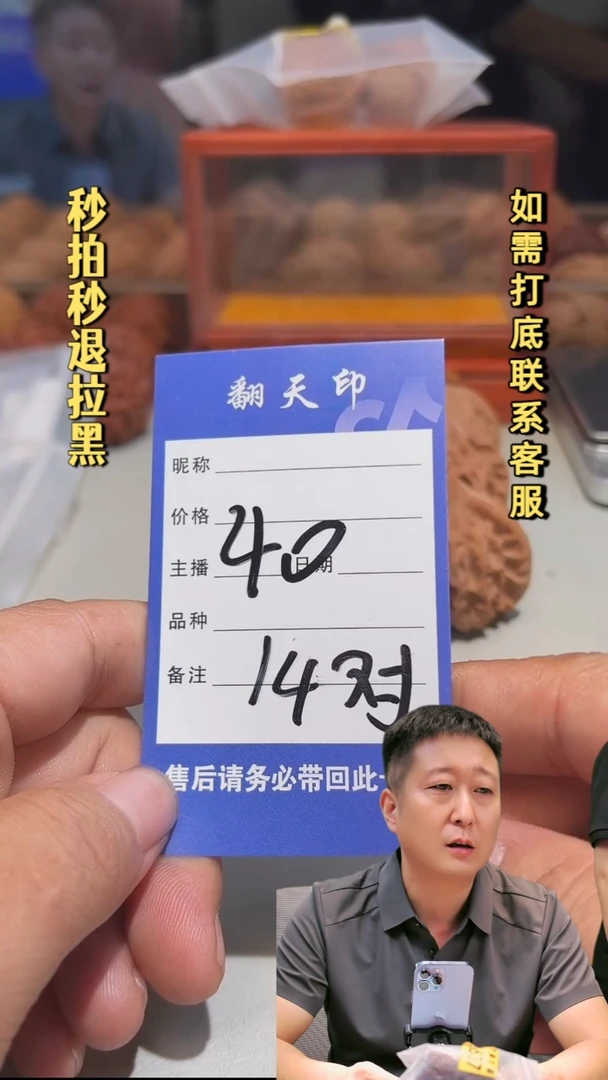 秒拍秒退拉黑
如需打底联系客服
翻天印
昵称
价格
40
主播 日期
品种
备注 14对
售后请务必带回此